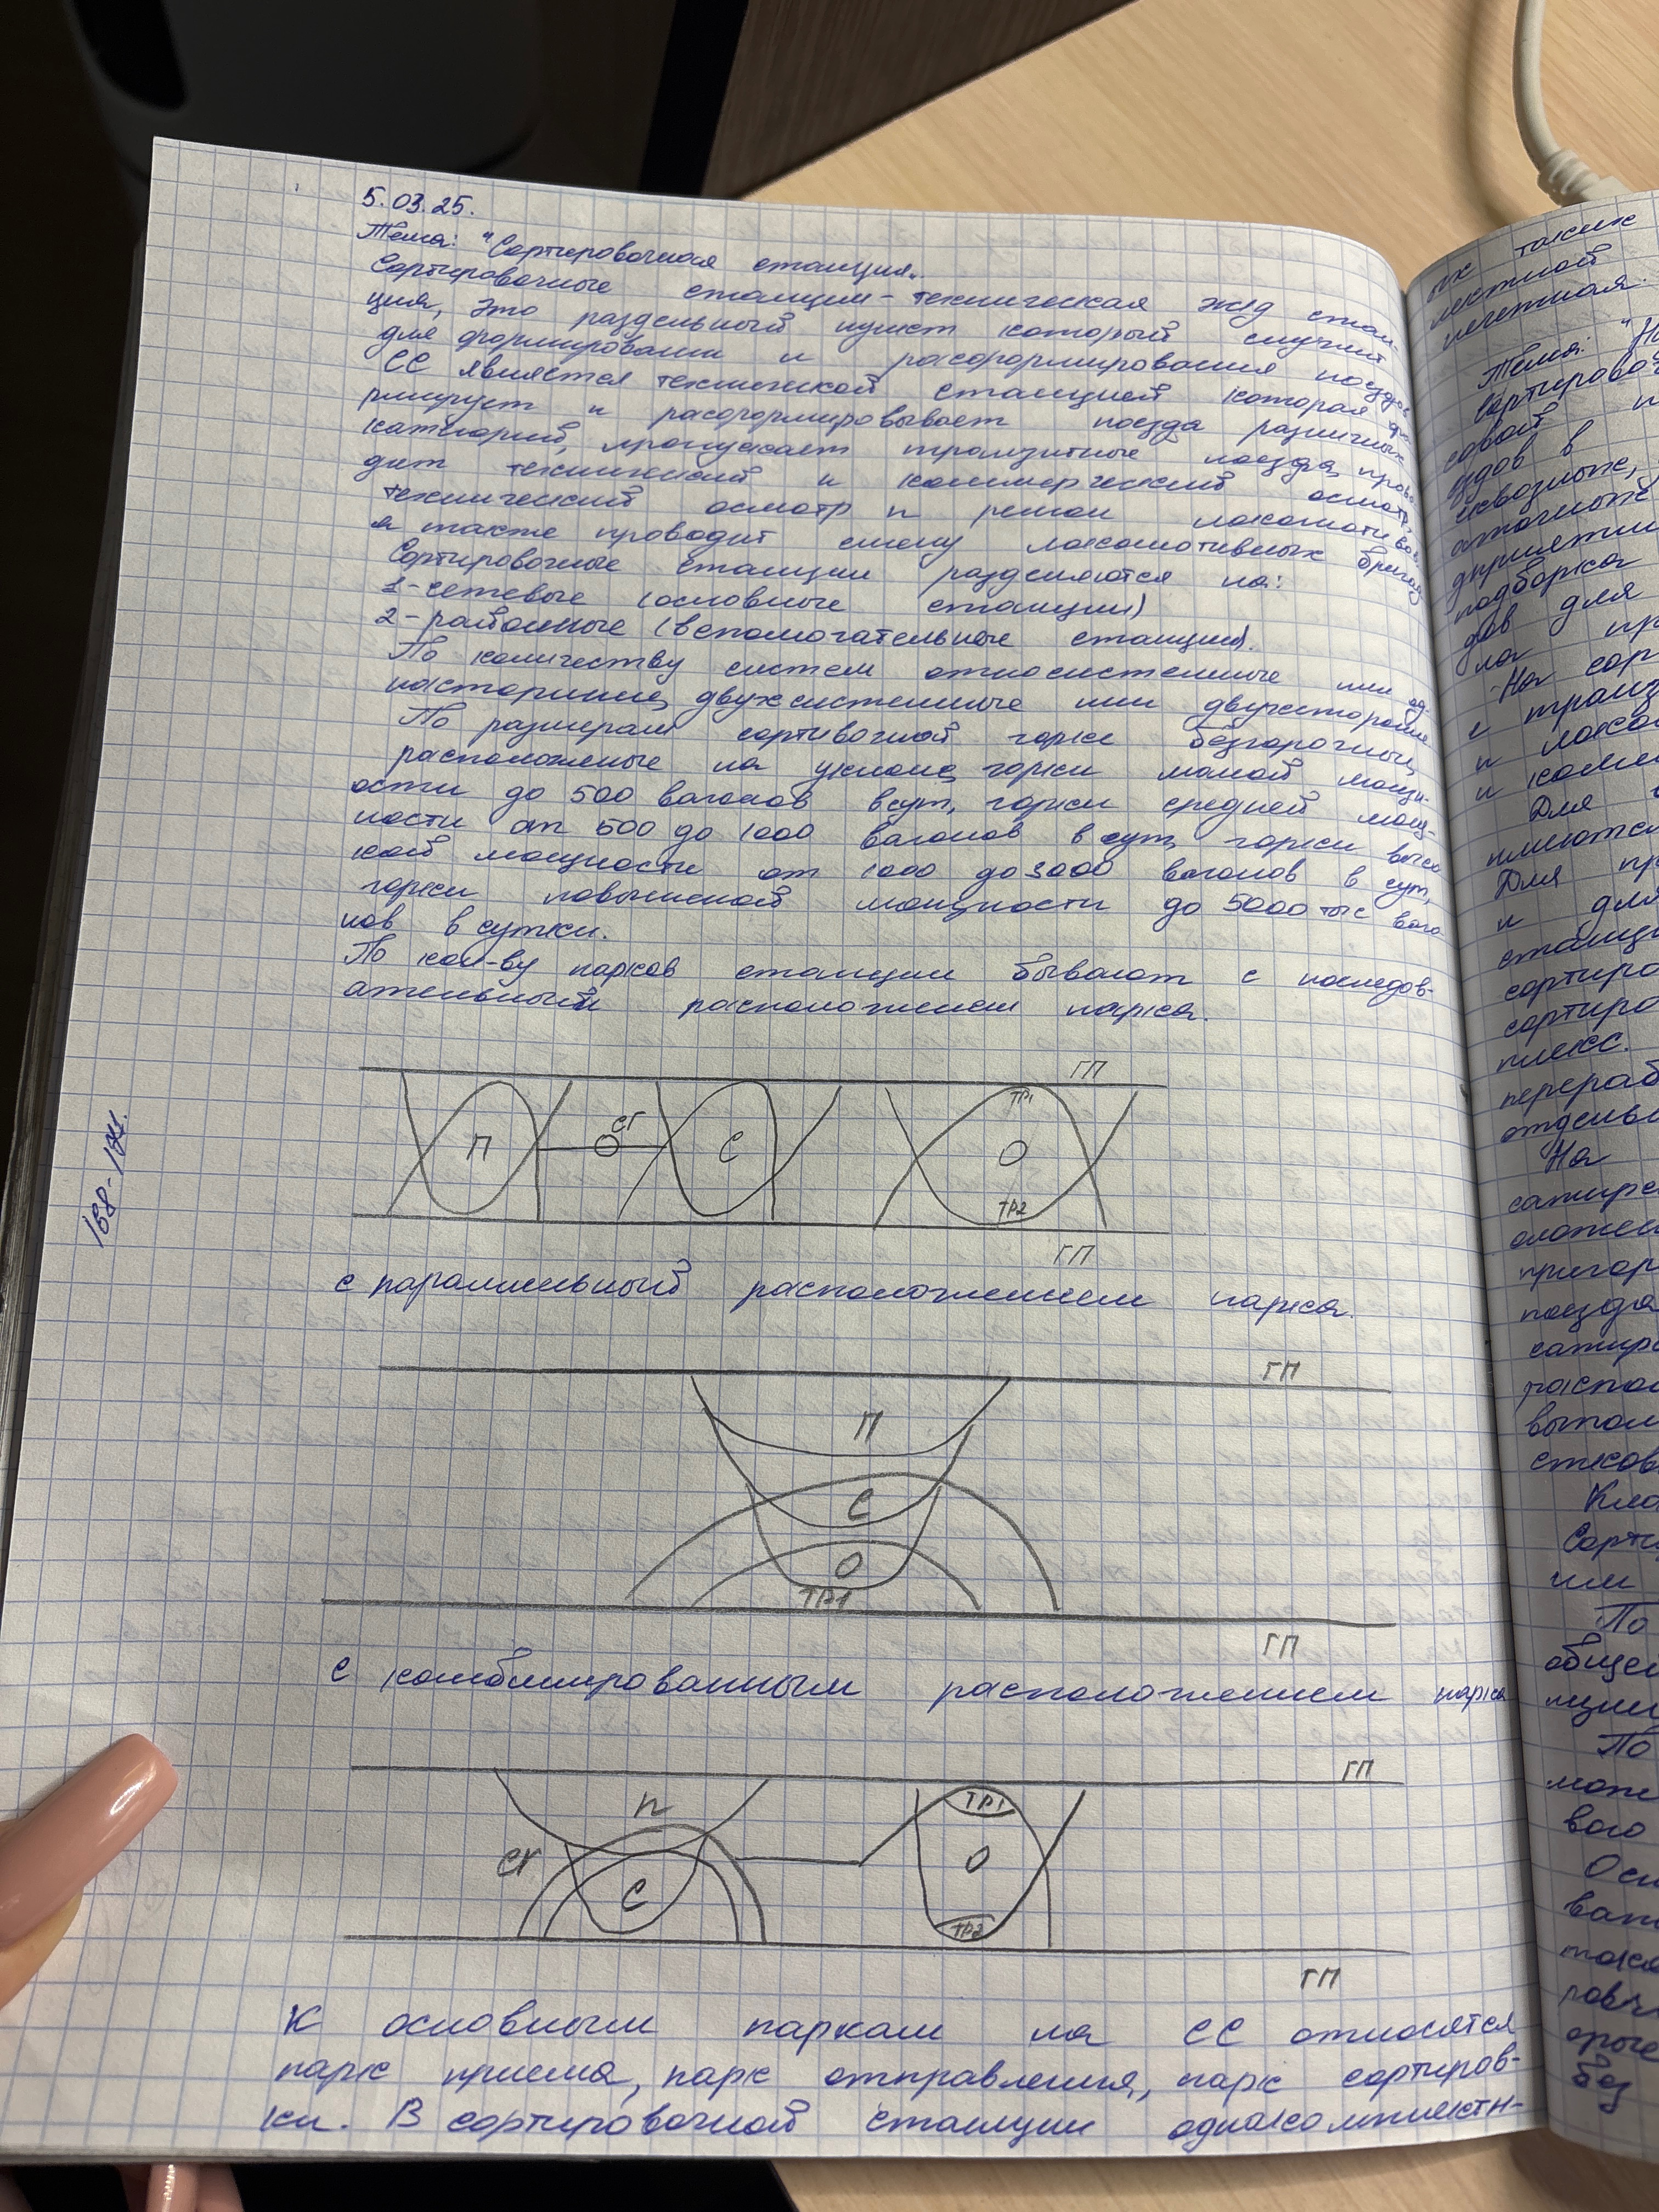 5.03.25.
Тема: "Сортировочная станция„
Сортировочные станции - техническая ж/д стан-
ция, это раздельный пункт который служит
для формировании и расформирования поездов
СС является технической станцией которая фо-
рмирует и расформировывает поезда различных
категорий, пропускает транзитные поезда, прово-
дит технический и коммерческий осмотр,
технический осмотр и ремон локомотивов,
а также проводит смену локомотивных бригад
Сортировочные станции разделяются на:
1 - сетевые (основные станции)
2 - районные (вспомогательные станции).
По количеству систем односистемные или од-
носторонние, двухсистемные или двухсторонние
По размерам сортивочной горке безгорочные,
расположеные на уклоне, горки малой мощн-
ости до 500 вагонов в сут, горки средней мощ-
ности от 500 до 1000 вагонов в сут, горки высо
кой мощности от 1000 до 3000 вагонов в сут,
горки повышеной мощности до 5000 тыс ваго
нов в сутки.
По кол-ву парков станции бывают с последов-
ательным расположением парка.
ГП
П СГ С ТР1 О ТР2
ГП
с параллельный расположением парка.
ГП
П
С
О
ТР1
ГП
с комбинированным расположением парка
ГП
П ТР1
СГ С О
ТР2
ГП
К основным паркам на СС относятся
парк приема, парк отправления, парк сортиров-
ки. В сортировочной станции однакомплектн-
168-184.
их также
Тема: "На
сортировоч
сквозные,
подборка
дов для
ла пр
На сор
с транз
и локо
и комм
Для
имеются
Для пр
и для
станци
сортиро
сортиро
плекс.
перераб
отдель
На
пригор
поезда
распол
выпол
Кла
Сорти
или
По
общес
По
може
вого
Осн
без